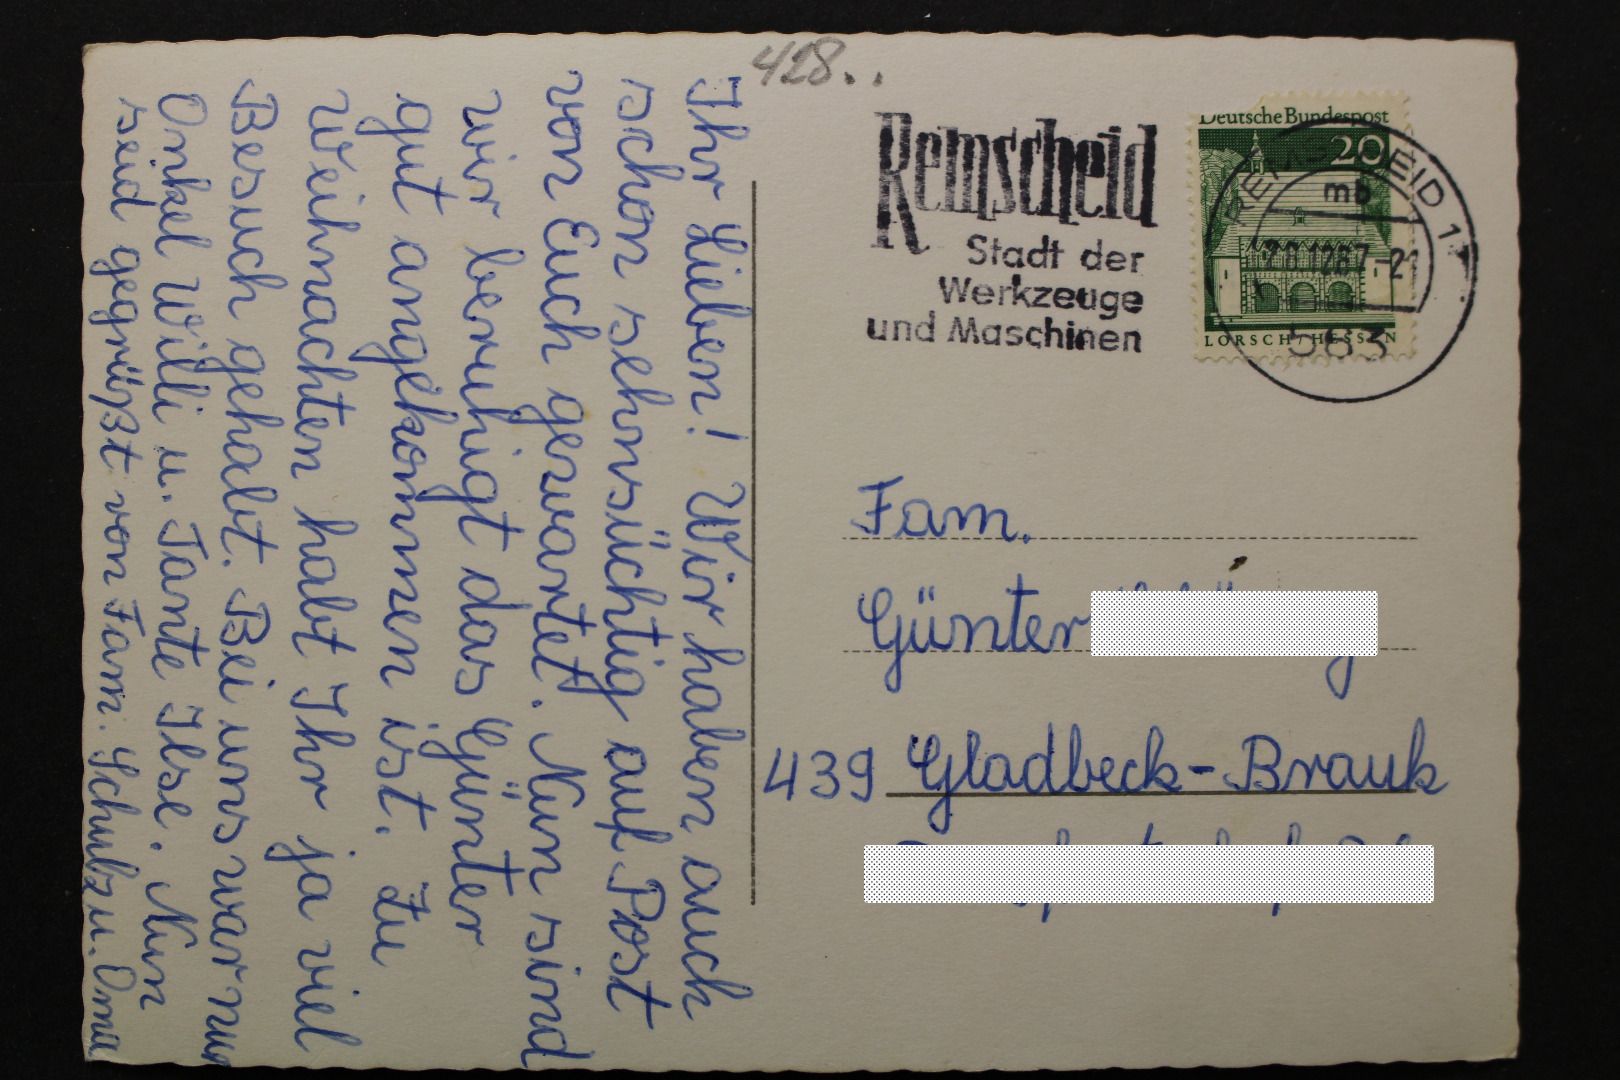 428..
Remscheid
Stadt der
Werkzeuge
und Maschinen
Deutsche Bundespost
20
LORSCH/HESSEN
REMSCHEID 1
mb
28.12.67-21
563
Ihr Lieben! Wir haben auch
schon sehnsüchtig auf Post
von Euch gewartet. Nun sind
wir beruhigt das Günter
gut angekommen ist. Zu
Weihnachten habt Ihr ja viel
Besuch gehabt. Bei uns war nur
Onkel Willi u. Tante Ilse. Nun
seid gegrüßt von Fam. Schulz u. Oma
Fam.
Günter
439 Gladbeck-Brauk